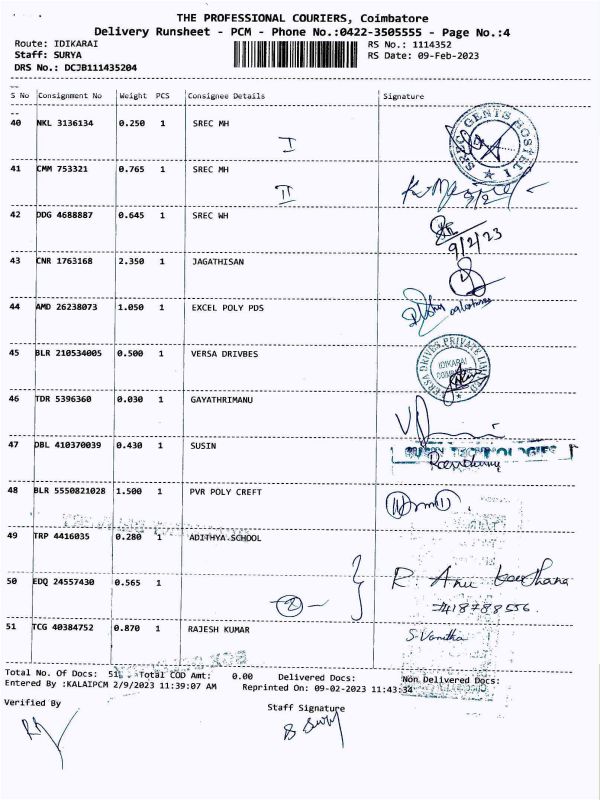 THE PROFESSIONAL COURIERS, Coimbatore
Delivery Runsheet - PCM - Phone No.:0422-3505555 - Page No.:4
Route: IDIKARAI RS No.: 1114352
Staff: SURYA RS Date: 09-Feb-2023
DRS No.: DCJB111435204
S No Consignment No Weight PCS Consignee Details Signature
40 NKL 3136134 0.250 1 SREC MH
I
GENTS HOSTEL I
41 CMM 753321 0.765 1 SREC MH
II
42 DDG 4688887 0.645 1 SREC WH
9/2/23
43 CNR 1763168 2.350 1 JAGATHISAN
44 AMD 26238073 1.050 1 EXCEL POLY PDS
45 BLR 210534005 0.500 1 VERSA DRIVBES
VERSA DRIVES PRIVATE LIMITED
IDIKARAI
46 TDR 5396360 0.030 1 GAYATHRIMANU
47 DBL 410370039 0.430 1 SUSIN
SUSIN TECHNOLOGIES
48 BLR 5550821028 1.500 1 PVR POLY CREFT
49 TRP 4416035 0.280 1 ADITHYA SCHOOL
50 EDQ 24557430 0.565 1
R. Anu
7418788556.
51 TCG 40384752 0.870 1 RAJESH KUMAR
S. Vanitha
Total No. Of Docs: 51 Total COD Amt: 0.00 Delivered Docs: Non Delivered Docs:
Entered By :KALAIPCM 2/9/2023 11:39:07 AM Reprinted On: 09-02-2023 11:43:34
Verified By Staff Signature